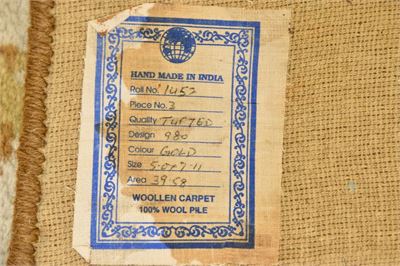 HAND MADE IN INDIA
Roll No. 1452
Piece No. 3
Quality TUFTED
Design 980
Colour GOLD
Size 5-0x7-11
Area 39.58
WOOLLEN CARPET
100% WOOL PILE